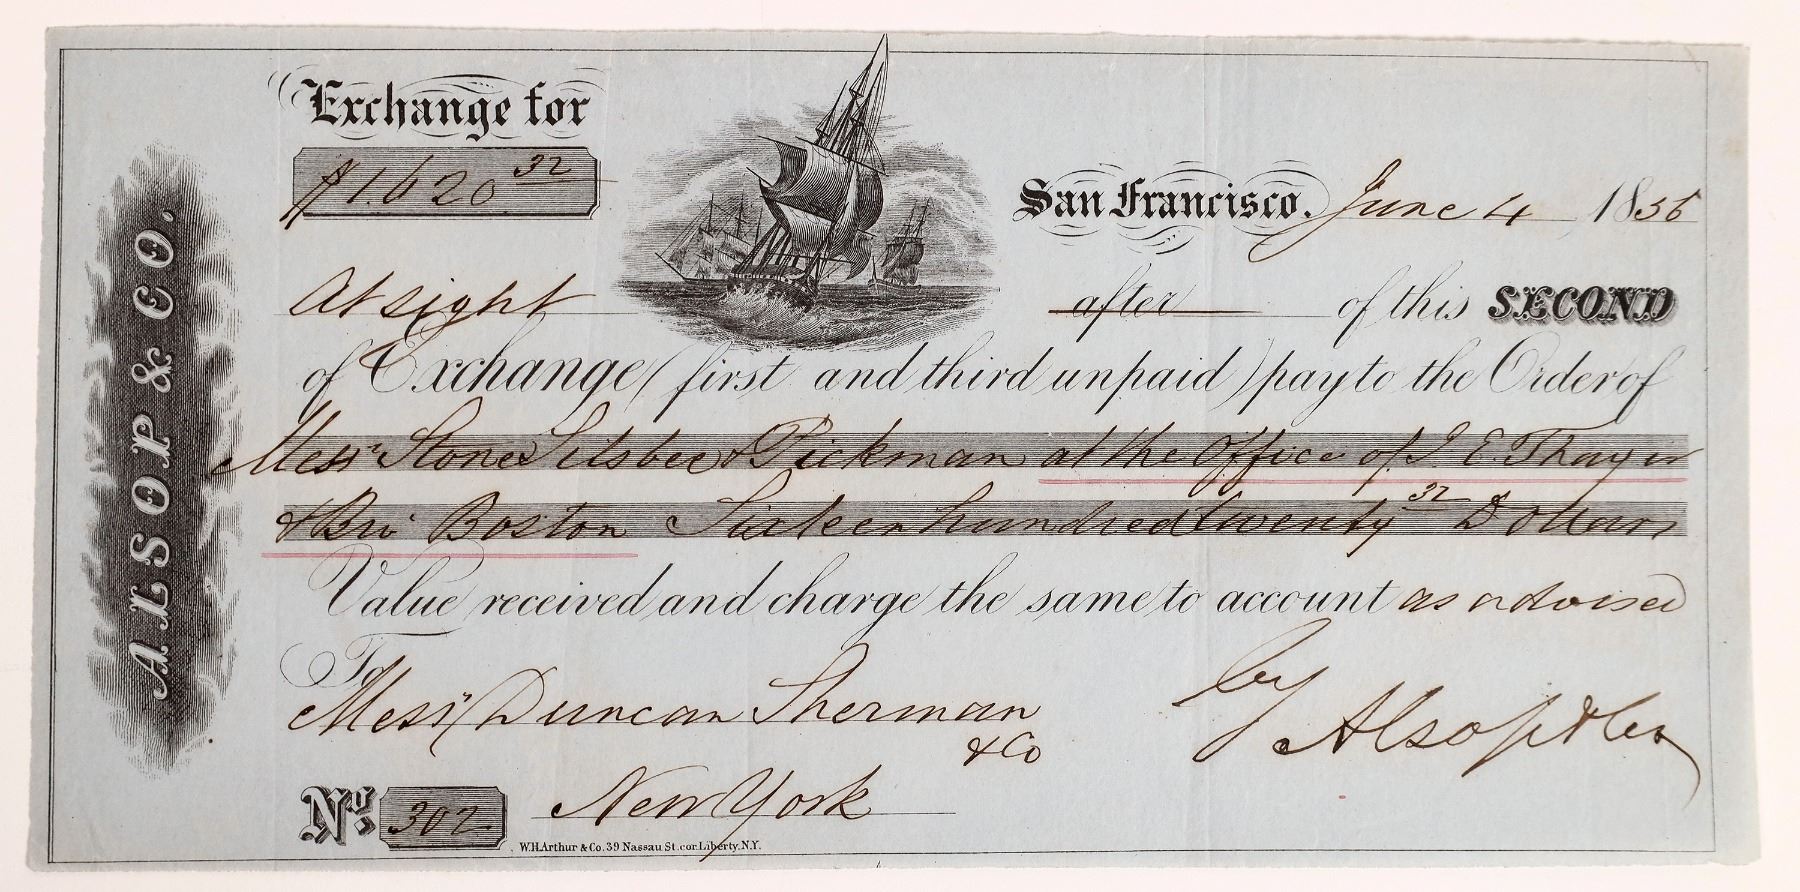 ALSOP & CO.
Exchange for
$1.620 32
San Francisco. June 4 1856
At sight after of this SECOND
of Exchange (first and third unpaid) pay to the Order of
Messrs Stone Silsbee & Pickman at the Office of J. E. Thayer
& Bro Boston Sixteen hundred twenty 32 Dollars
Value received and charge the same to account as advised
To
Messrs Duncan Sherman
& Co
by Alsop & Co
No. 302 New York
W.H. Arthur & Co. 39 Nassau St. cor. Liberty. N.Y.